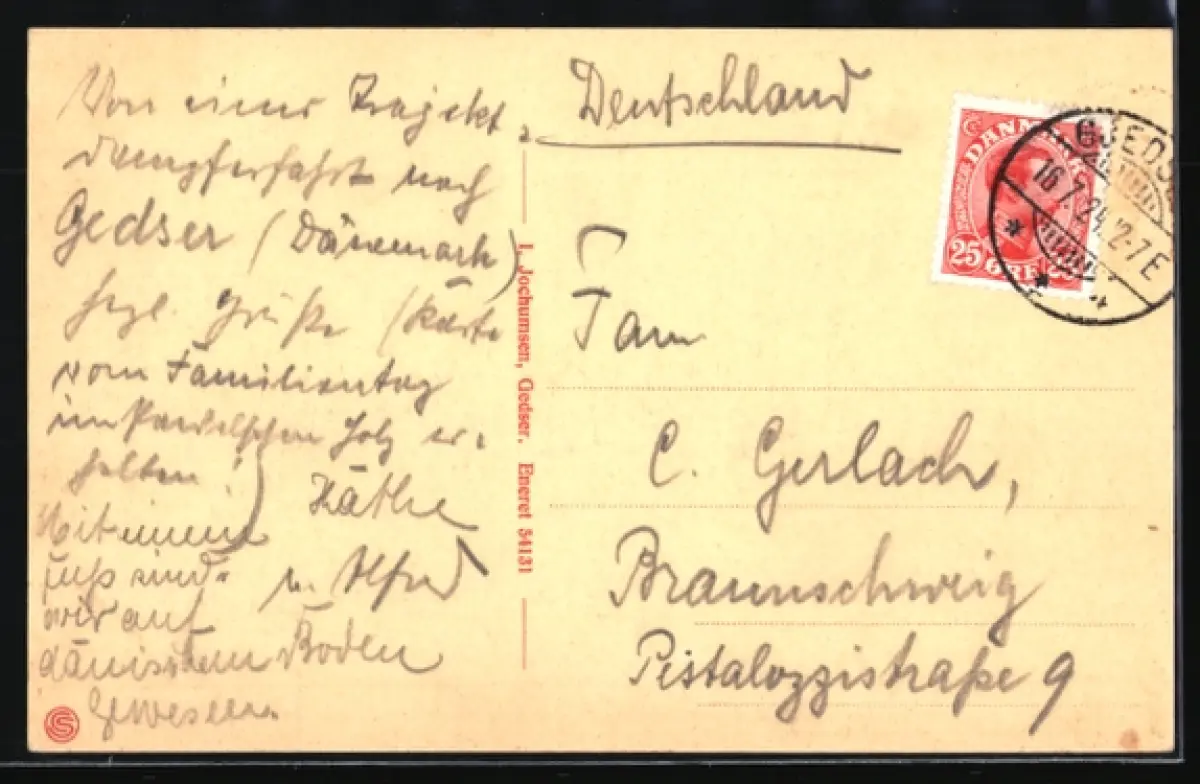 Von einer Trajekt-
dampferfahrt nach
Gedser (Dänemark)
herzl. Grüße (Karte
vom Familientag
im Holz er-
halten!)
Käthe
u. Alfred
Mit einem
Fuß sind
wir auf
dänischem Boden
gewesen.
I. Jochumsen, Gedser. Eneret 54131
Deutschland
DANMARK
25 ØRE 25
GJEDSER
16.7.24. 2-7 E
Fam
C. Gerlach,
Braunschweig
Pestalozzistraße 9